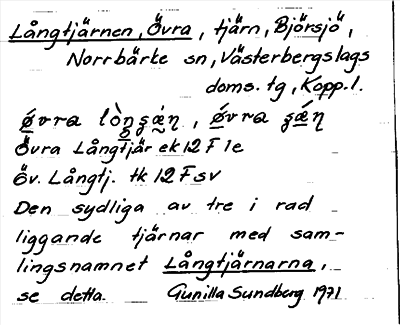 Långtjärnen, Övra, tjärn, Björsjö,
Norrbärke sn, Västerbergslags
doms. tg, Kopp. l.
øvra lòŋʂæ̀ṇ, øvra ʂǽṇ
Övra Långtjär ek 12 F 1e
Öv. Långtj. tk 12 F sv
Den sydliga av tre i rad
liggande tjärnar med sam-
lingsnamnet Långtjärnarna,
se detta. Gunilla Sundberg 1971